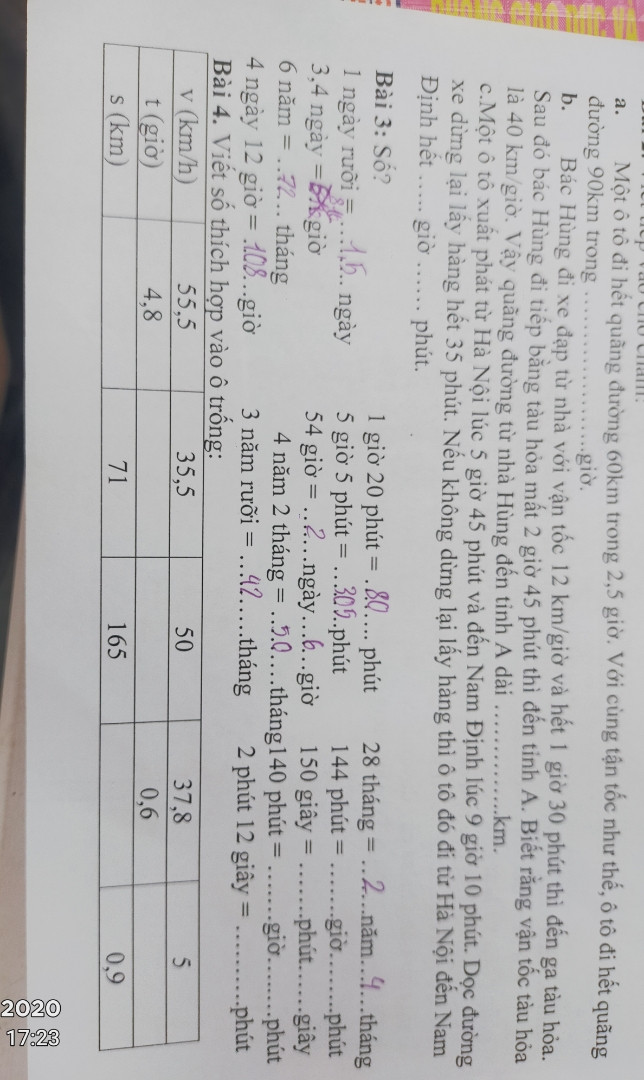 a. Một ô tô đi hết quãng đường 60km trong 2,5 giờ. Với cùng tận tốc như thế, ô tô đi hết quãng
đường 90km trong ....................giờ.
b. Bác Hùng đi xe đạp từ nhà với vận tốc 12 km/giờ và hết 1 giờ 30 phút thì đến ga tàu hỏa.
Sau đó bác Hùng đi tiếp bằng tàu hỏa mất 2 giờ 45 phút thì đến tỉnh A. Biết rằng vận tốc tàu hỏa
là 40 km/giờ. Vậy quãng đường từ nhà Hùng đến tỉnh A dài ..............km.
c.Một ô tô xuất phát từ Hà Nội lúc 5 giờ 45 phút và đến Nam Định lúc 9 giờ 10 phút. Dọc đường
xe dừng lại lấy hàng hết 35 phút. Nếu không dừng lại lấy hàng thì ô tô đó đi từ Hà Nội đến Nam
Định hết ...... giờ ...... phút.
Bài 3: Số?
1 ngày rưỡi = ....1,5.. ngày 1 giờ 20 phút = ..80.... phút 28 tháng = ...2...năm...4....tháng
3,4 ngày = giờ 5 giờ 5 phút = ...305..phút 144 phút = .......giờ.......phút
6 năm = ..72... tháng 54 giờ = ...2....ngày...6...giờ 150 giây = .......phút......giây
4 ngày 12 giờ = .108...giờ 4 năm 2 tháng = ...50....tháng 140 phút = .......giờ.......phút
3 năm rưỡi = ...42......tháng 2 phút 12 giây = ..........phút
Bài 4. Viết số thích hợp vào ô trống:
v (km/h) 55,5 35,5 50 37,8 5
t (giờ) 4,8 0,6
s (km) 71 165 0,9
2020
17:23